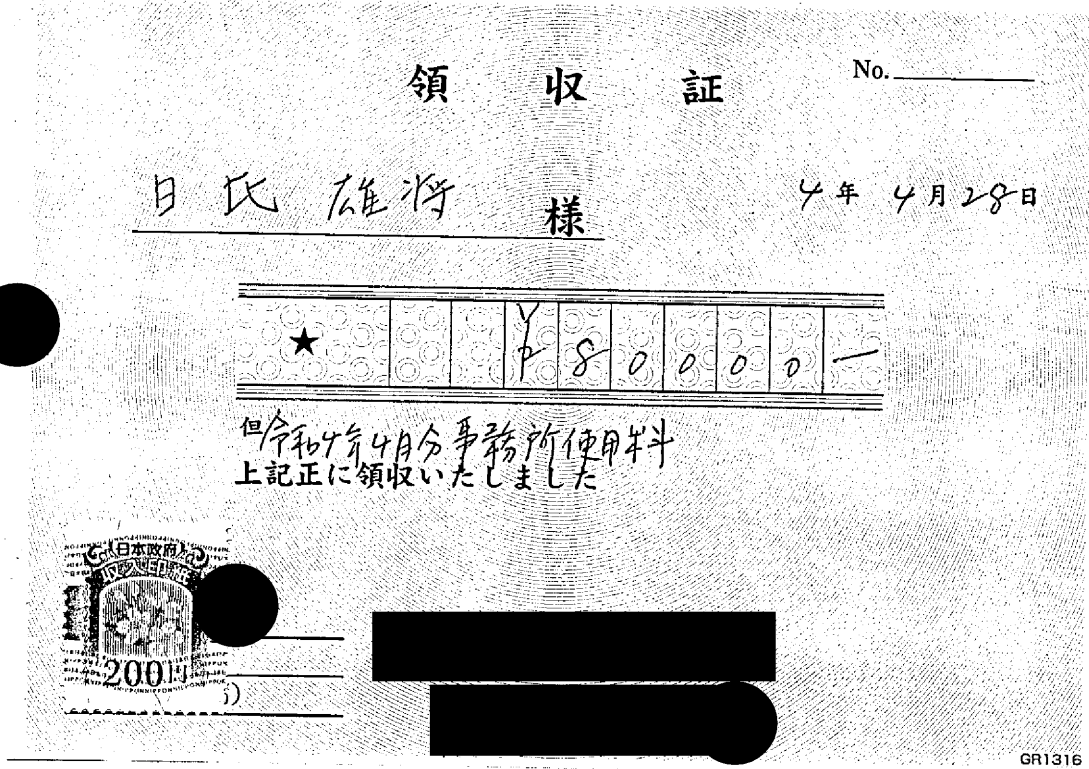 領収証
No.
日氏 雄将 様
4年 4月28日
★ ¥80000-
但 令和4年4月分事務所使用料
上記正に領収いたしました
日本政府
収入印紙
200円
GR1316